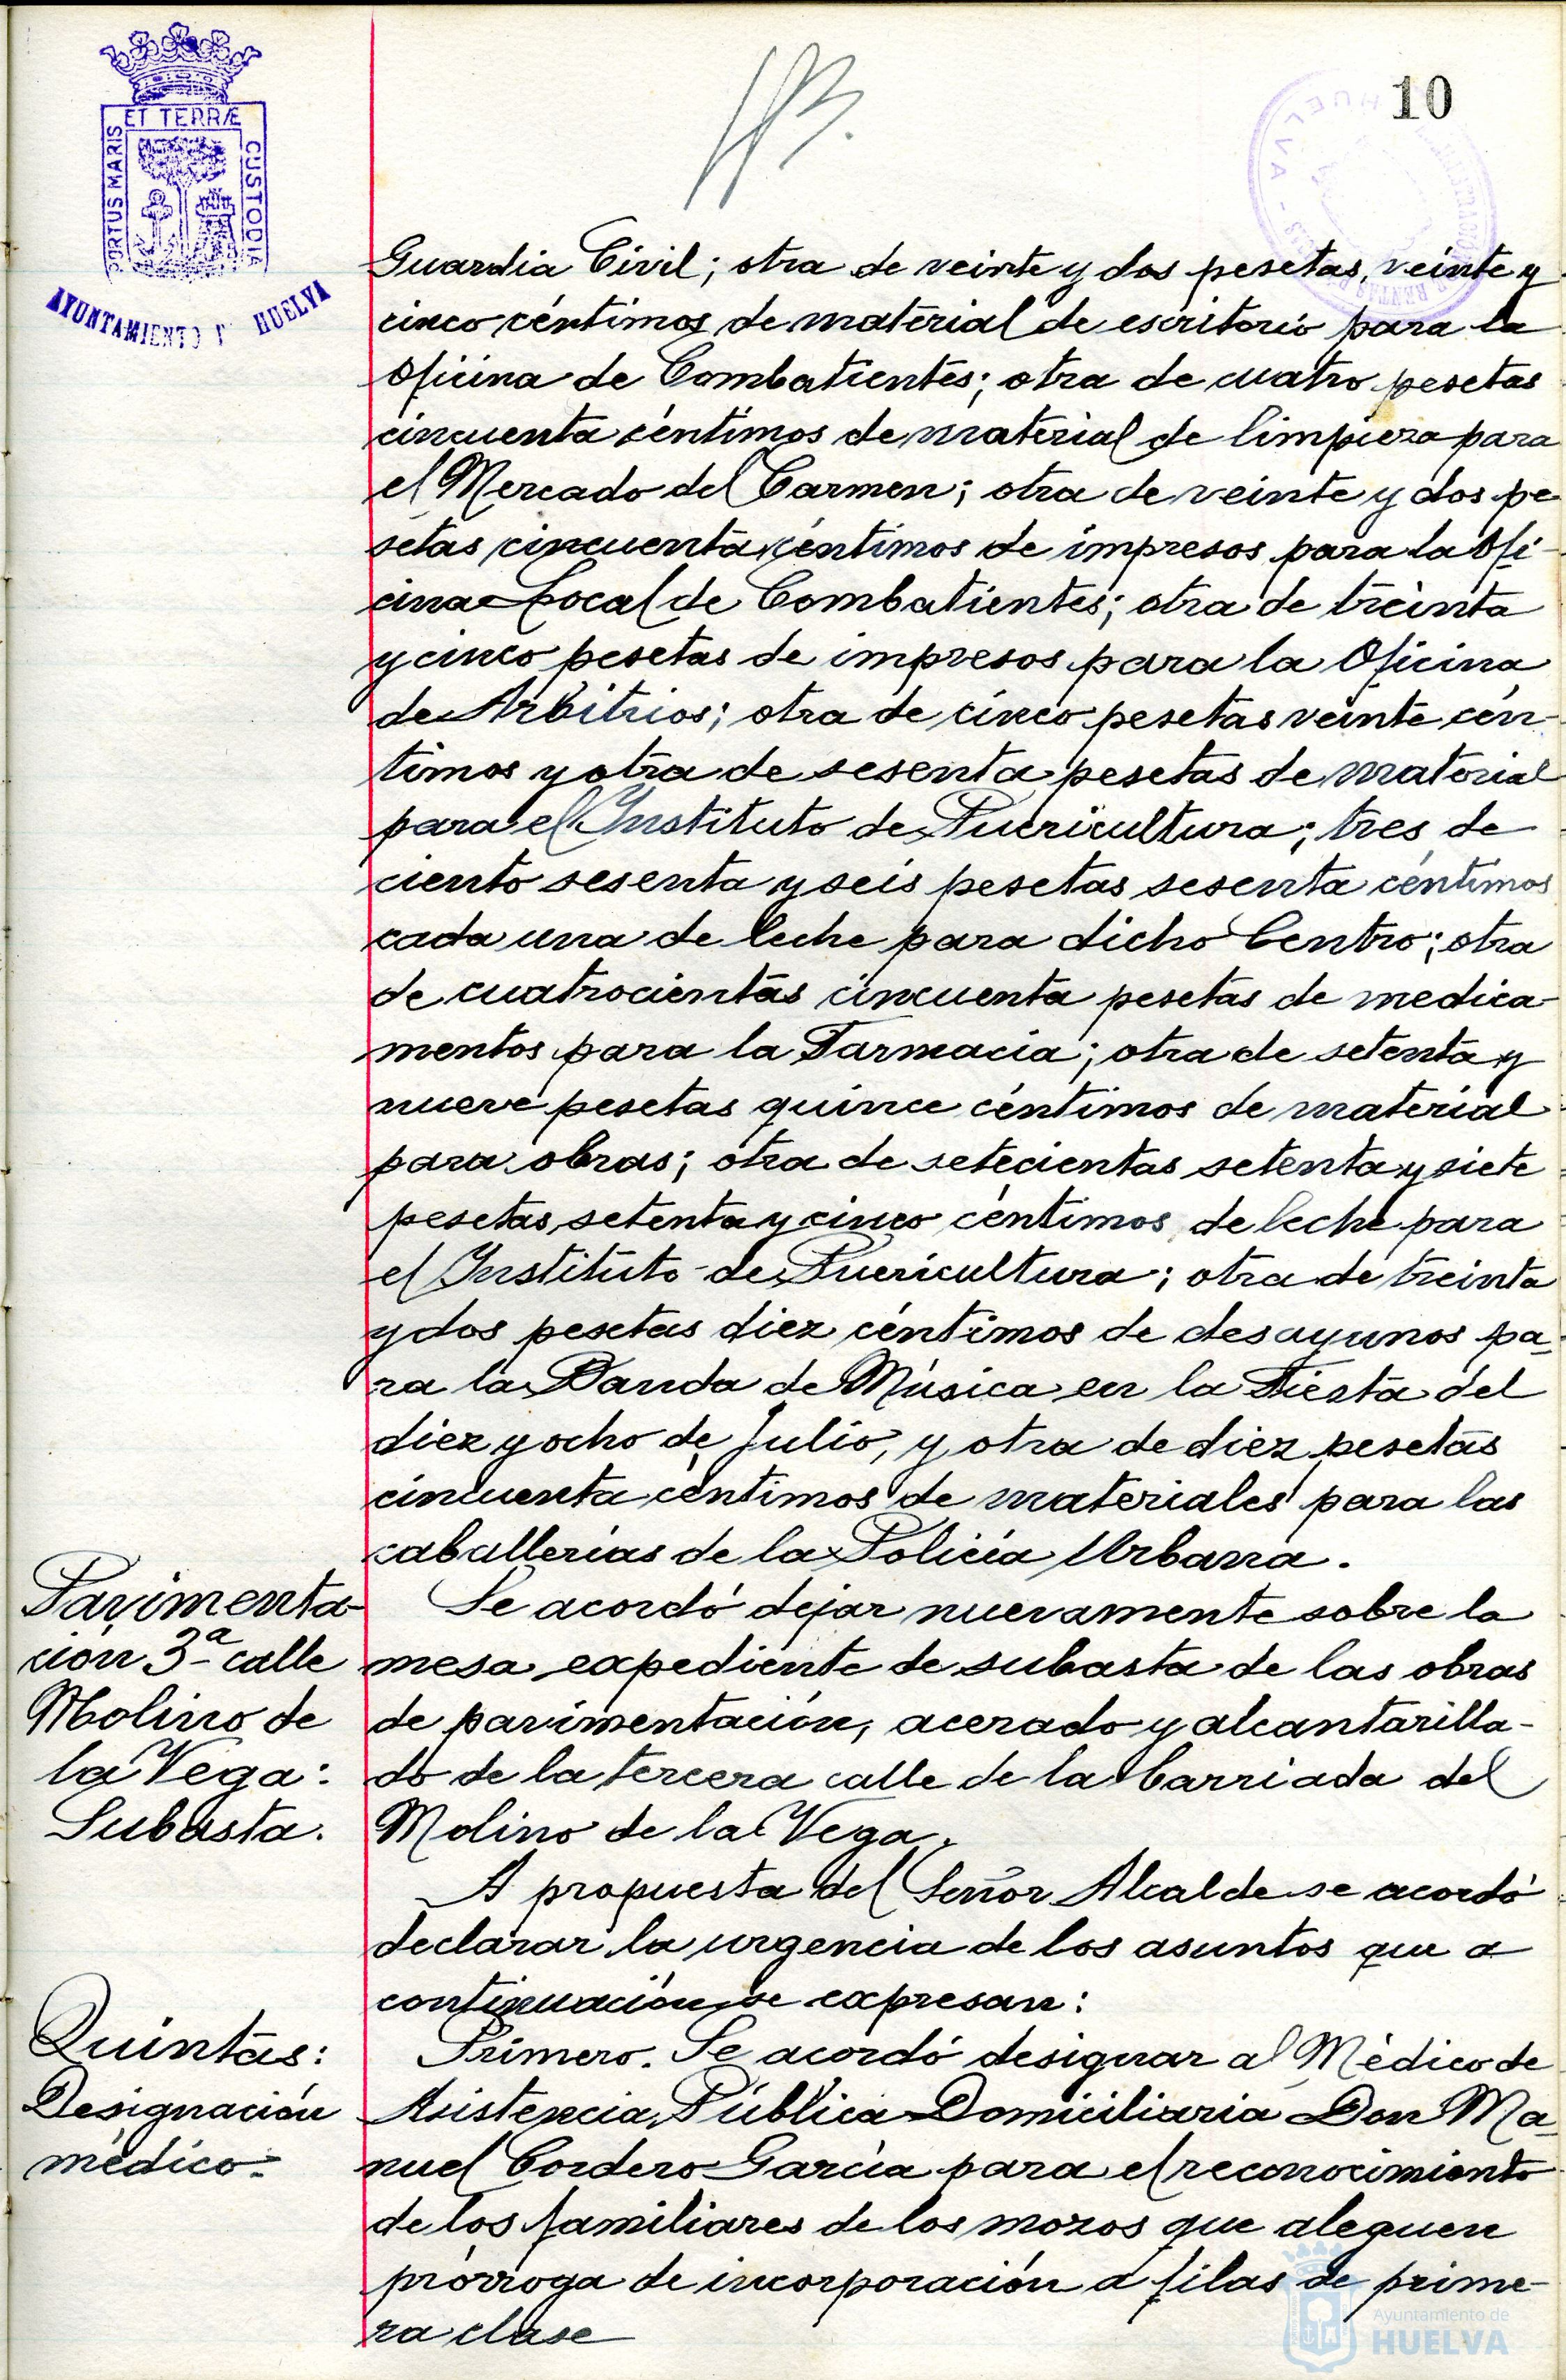 ET TERRÆ
PORTUS MARIS
CUSTODIA
AYUNTAMIENTO D HUELVA
10
HUELVA
Guardia Civil; otra de veinte y dos pesetas, veinte y
cinco céntimos de material de escritorio para la
Oficina de Combatientes; otra de cuatro pesetas
cincuenta céntimos de material de limpieza para
el Mercado del Carmen; otra de veinte y dos pe-
setas cincuenta céntimos de impresos para la Ofi-
cina Local de Combatientes; otra de treinta
y cinco pesetas de impresos para la Oficina
de Arbitrios; otra de cinco pesetas veinte cén-
timos y otra de sesenta pesetas de material
para el Instituto de Puericultura; tres de
ciento sesenta y seis pesetas sesenta céntimos
cada una de leche para dicho Centro; otra
de cuatrocientas cincuenta pesetas de medica-
mentos para la Farmacia; otra de setenta y
nueve pesetas quince céntimos de material
para obras; otra de setecientas setenta y siete
pesetas setenta y cinco céntimos de leche para
el Instituto de Puericultura; otra de treinta
y dos pesetas diez céntimos de desayunos pa-
ra la Banda de Música en la Fiesta del
diez y ocho de Julio, y otra de diez pesetas
cincuenta céntimos de materiales para las
caballerías de la Policía Urbana.
Pavimenta-
ción 3ª calle
Molino de
la Vega:
Subasta.
Se acordó dejar nuevamente sobre la
mesa expediente de subasta de las obras
de pavimentación, acerado y alcantarilla-
do de la tercera calle de la barriada del
Molino de la Vega.
A propuesta del Señor Alcalde se acordó
declarar la urgencia de los asuntos que a
continuación se expresan:
Quintas:
Designación
médico.
Primero. Se acordó designar al Médico de
Asistencia Pública Domiciliaria Don Ma-
nuel Cordero García para el reconocimiento
de los familiares de los mozos que aleguen
prórroga de incorporación a filas de prime-
ra clase
Ayuntamiento de
HUELVA